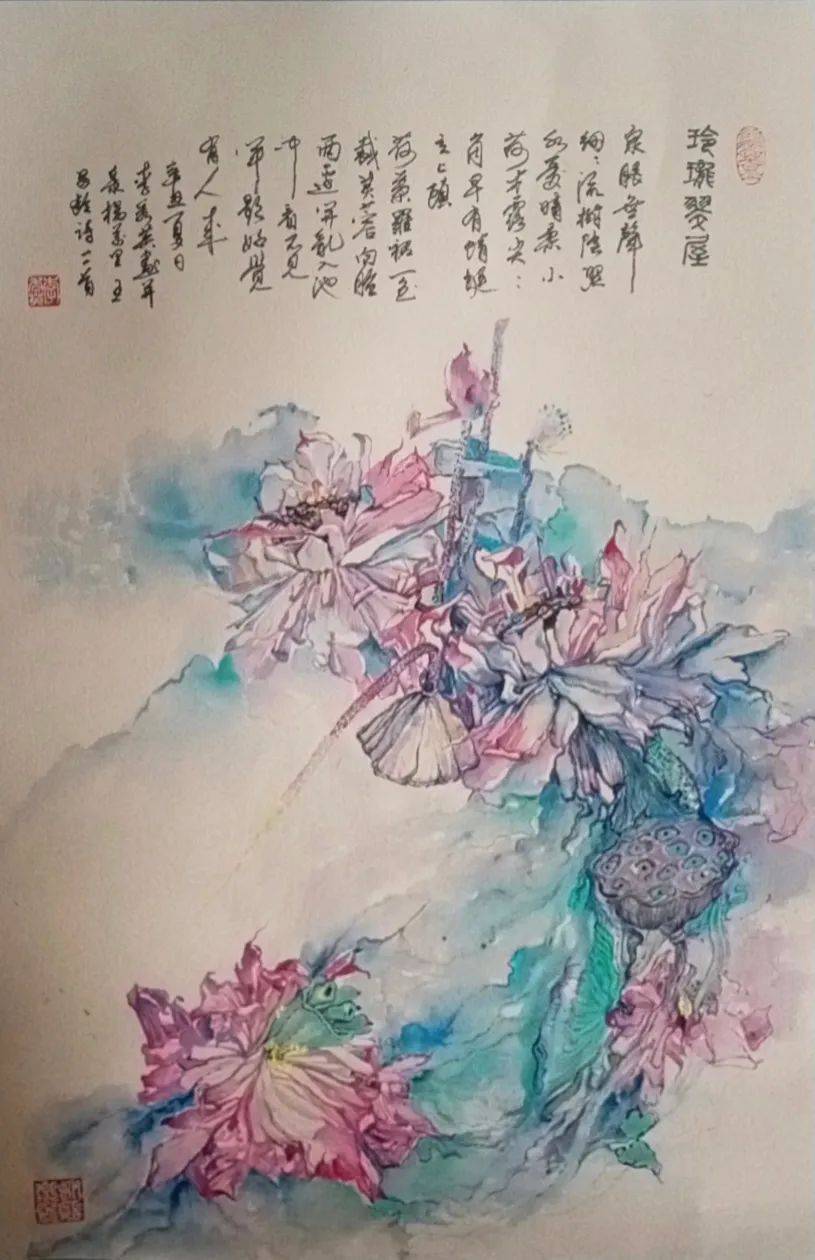 玲瓏屋
泉眼無聲
細〻流樹陰照
水愛晴柔小
荷才露尖〻
角早有蜻蜓
立上頭
荷葉羅裙一色
裁芙蓉向臉
兩邊開亂入池
中看不見
聞歌始覺
有人來
辛丑夏日
李英畫并
錄楊萬里王
昌齡詩二首